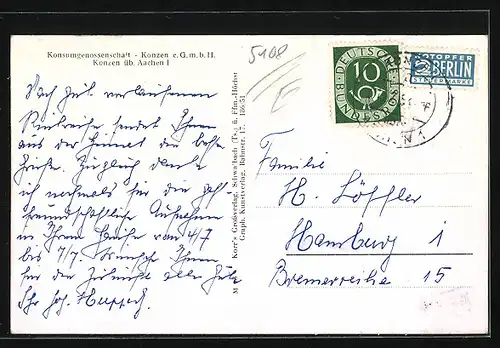 Konsumgenossenschaft - Konzen e.G.m.b.H.
Konzen üb. Aachen I
5408
DEUTSCHE BUNDESPOST
10
NOTOPFER
2 BERLIN
STEUERMARKE
Nach gut verlaufener
Rückreise sendet Ihnen
aus der Heimat die besten
Grüsse. Zugleich danke
ich nochmals für die
freundschaftliche Aufnahme
in Ihrem Hause vom 4/7
bis 7/7. Wünsche Ihnen
für die Zukunft alles Gute
Ihr Joh.
M Korr's Großverlag, Schwalbach (Ts.) ü. Ffm.-Höchst
Graph. Kunstverlag, Bahnstr. 17. 186/51
Familie
H. Löffler
Hamburg 1
Bremerreihe 15